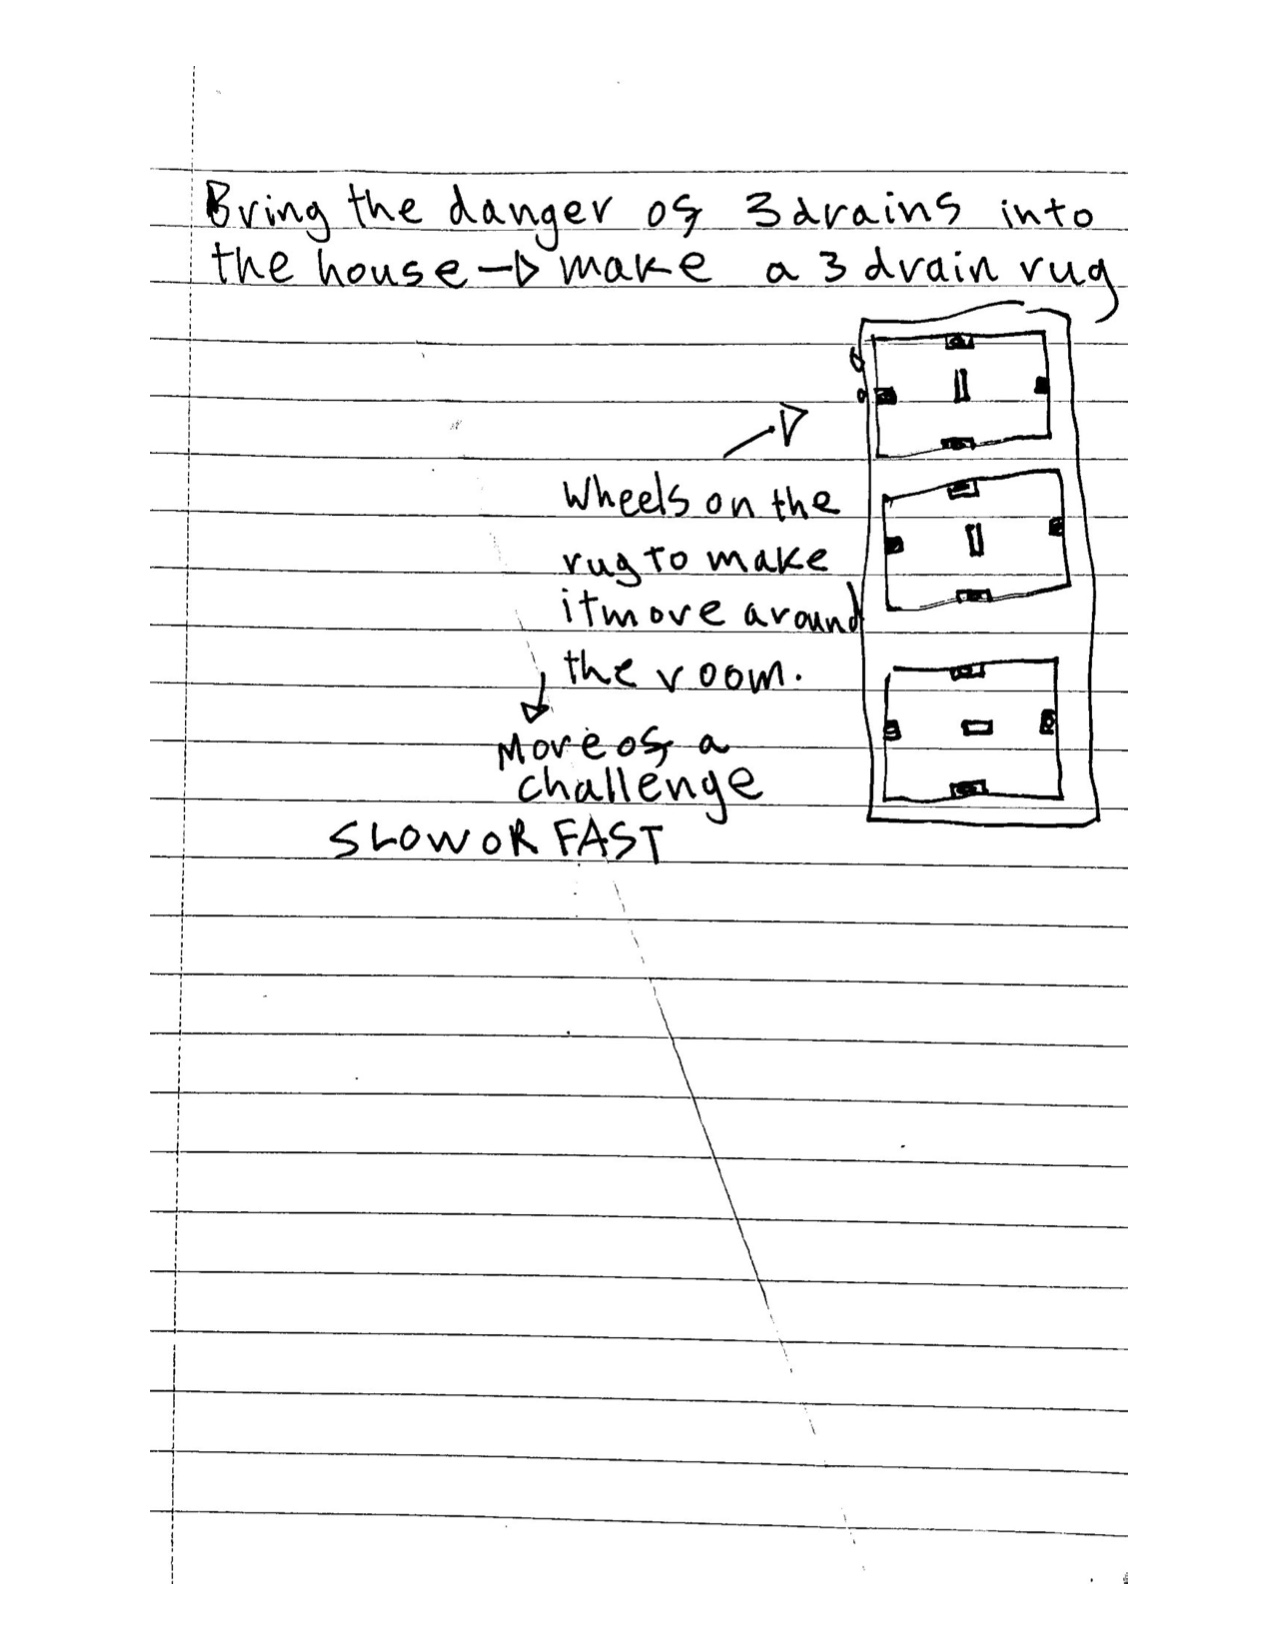 Bring the danger of 3 drains into
the house → make a 3 drain rug
Wheels on the
rug to make
it move around
the room.
More of a
challenge
SLOW OR FAST